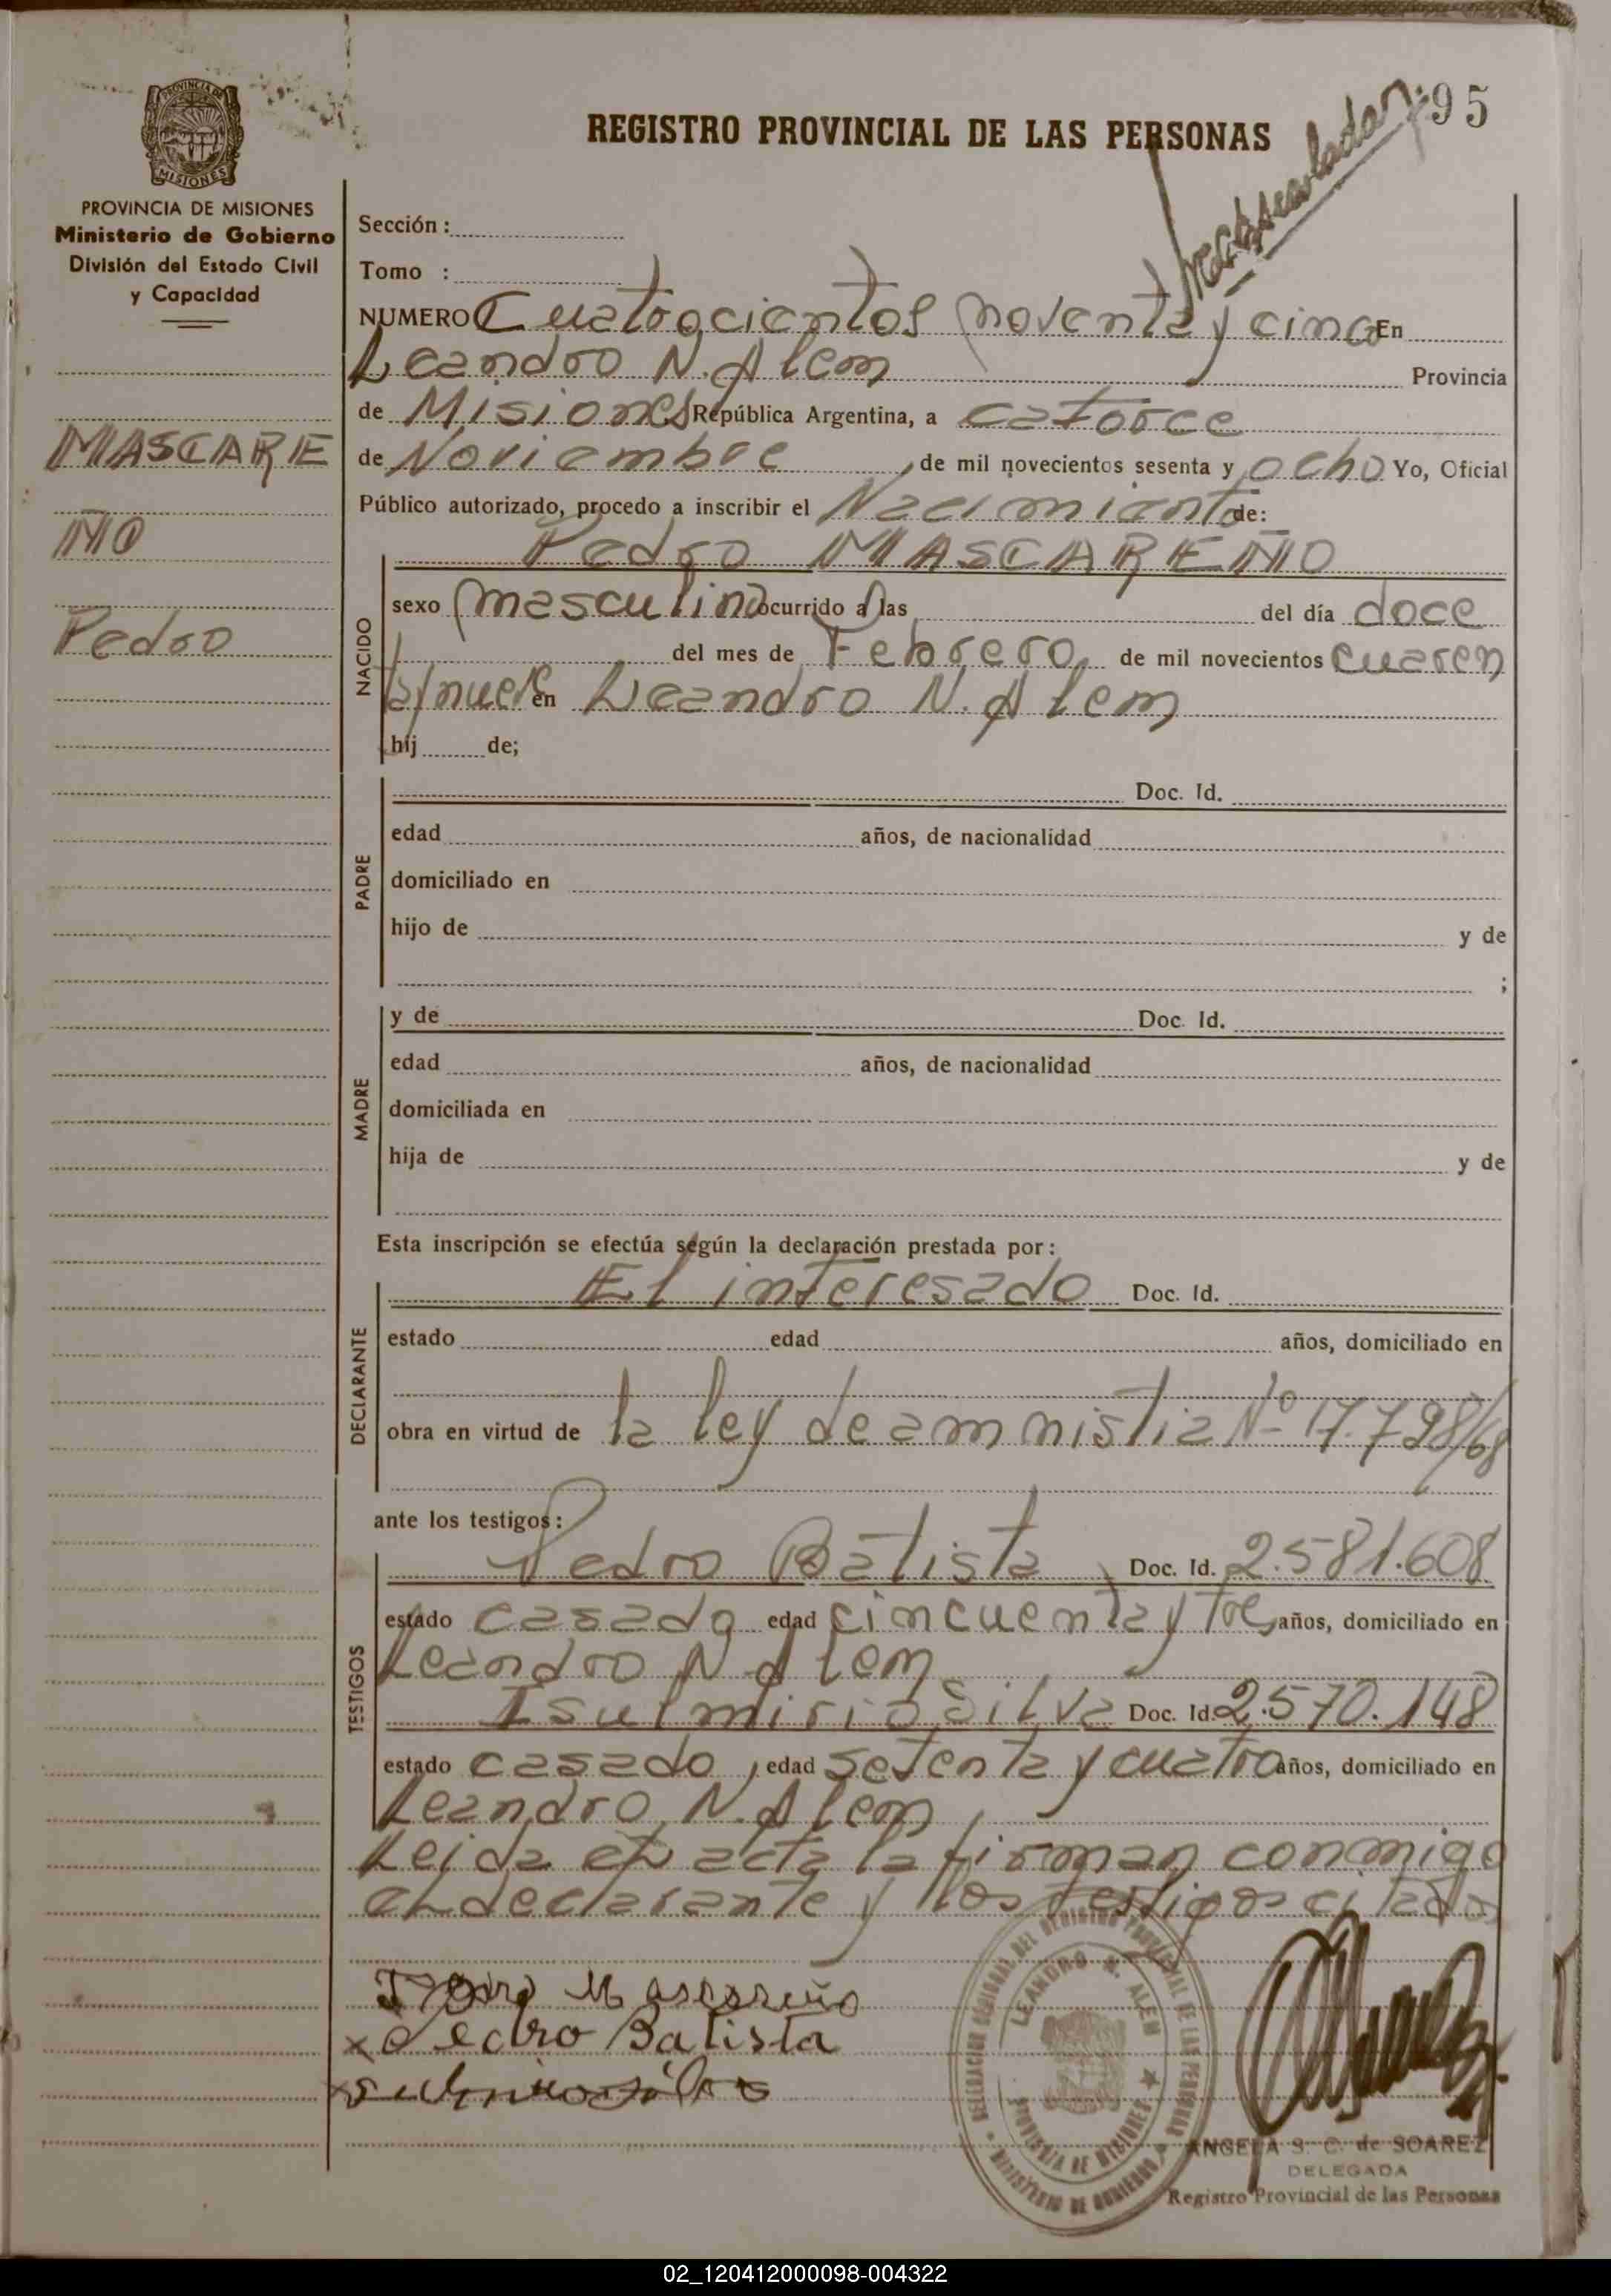 95
REGISTRO PROVINCIAL DE LAS PERSONAS
PROVINCIA DE MISIONES
Ministerio de Gobierno
División del Estado Civil
y Capacidad
Sección :
Tomo :
NUMERO Cuatrocientos noventa y cinco En
Leandro N. Alem Provincia
de Misiones República Argentina, a catorce
de Noviembre, de mil novecientos sesenta y ocho Yo, Oficial
Público autorizado, procedo a inscribir el Nacimiento de:
MASCARE
ÑO
Pedro
NACIDO
Pedro MASCAREÑO
sexo masculino ocurrido a las del día doce
del mes de Febrero, de mil novecientos cuaren
ta y nueve en Leandro N. Alem
hij de;
PADRE
Doc. Id.
edad años, de nacionalidad
domiciliado en
hijo de y de
;
MADRE
y de Doc. Id.
edad años, de nacionalidad
domiciliada en
hija de y de
Esta inscripción se efectúa según la declaración prestada por :
DECLARANTE
El interesado Doc. Id.
estado edad años, domiciliado en
obra en virtud de la ley de amnistia Nº 17.798/68
ante los testigos:
TESTIGOS
Pedro Batista Doc. Id. 2.581.608
estado casado edad cincuenta y tres años, domiciliado en
Leandro N. Alem
Isulmirio Silva Doc. Id. 2.570.148
estado casado, edad setenta y cuatro años, domiciliado en
Leandro N. Alem
Leida el acta la firman conmigo
el declarante y los testigos citados
Pedro Mascareño
x Pedro Batista
DELEGACION REGIONAL DEL REGISTRO PROVINCIAL DE LAS PERSONAS
LEANDRO N. ALEM
PROVINCIA DE MISIONES
MINISTERIO DE GOBIERNO
ANGELA S. C. de SOAREZ
DELEGADA
Registro Provincial de las Personas
02_120412000098-004322